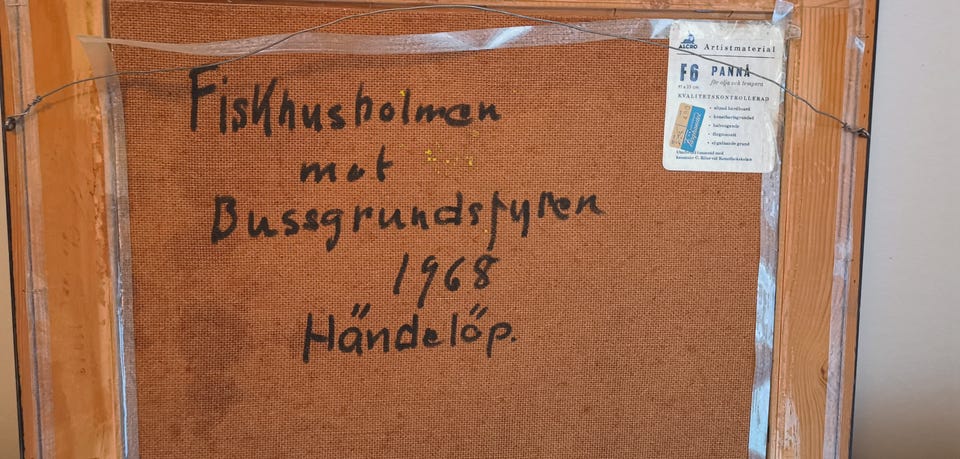 Fiskhusholmen
mot
Bussgrundsfyren
1968
Händelöp.
ALCRO Artistmaterial
F6 PANNÅ
för olja och tempera
KVALITETSKONTROLLERAD